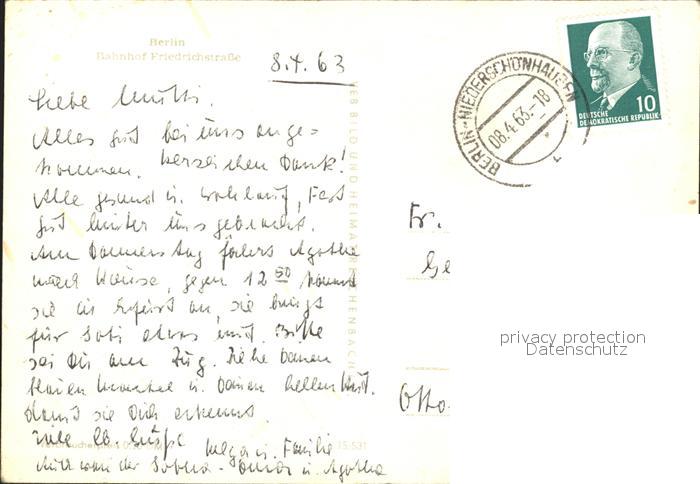 Berlin
Bahnhof Friedrichstraße
8.4.63
Liebe Mutti.
Alles gut bei uns ange=
kommen. herzlichen Dank!
Alle gesund u. wohlauf, Fest
gut hinter uns gebracht.
Am Donnerstag fährt Agathe
nach Hause, gegen 12 50 kommt
sie in Erfurt an, sie bringt
für etwas mit. Bitte
sei Du am Zug. Ziehe Deinen
blauen Mantel u. Deinen hellen Hut.
damit sie Dich erkennt.
Viele lb. Grüße Helga u. Familie
u. Agathe
VEB BILD UND HEIMAT REICHENBACH
BERLIN-NIEDERSCHÖNHAUSEN
08.4.63.-18
1
10
DEUTSCHE
DEMOKRATISCHE REPUBLIK
Fr.
Ge
Otto-
privacy protection
Datenschutz